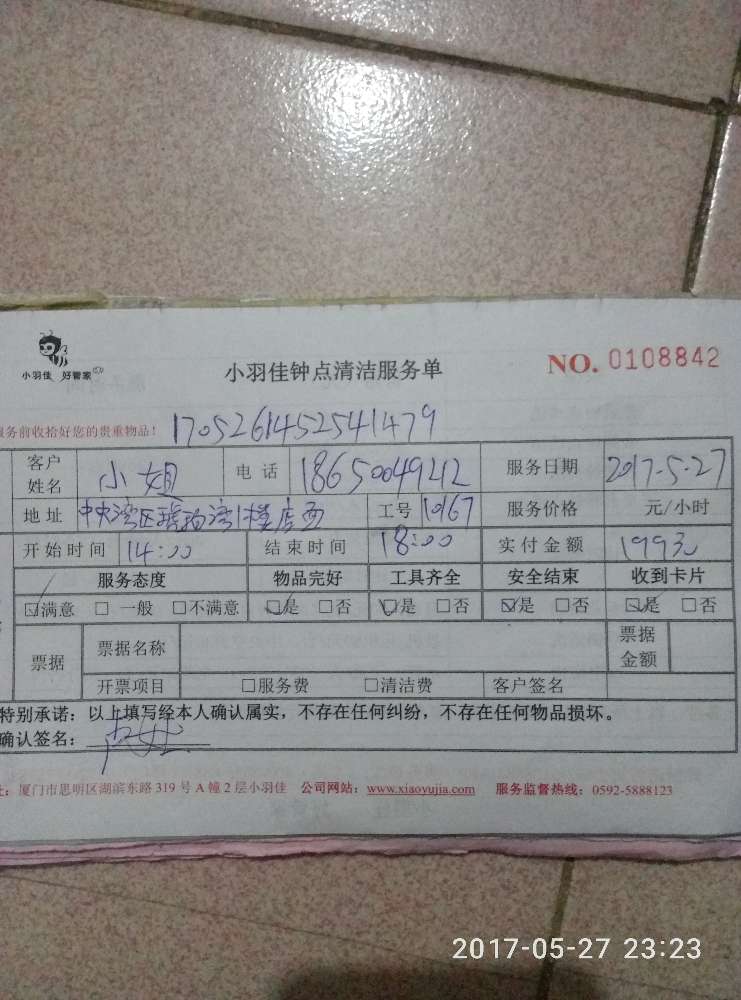 小羽佳 好管家
小羽佳钟点清洁服务单
NO. 0108842
服务前收拾好您的贵重物品!
1705261452541479
客户姓名 小姐 电话 18650049212 服务日期 2017-5-27
地址 中央湾区琥珀湾1楼店面 工号 10167 服务价格 元/小时
开始时间 14:00 结束时间 18:00 实付金额
服务态度 物品完好 工具齐全 安全结束 收到卡片
☑满意 □一般 □不满意 ☑是 □否 ☑是 □否 ☑是 □否 ☑是 □否
票据 票据名称 票据金额
开票项目 □服务费 □清洁费 客户签名
特别承诺:以上填写经本人确认属实,不存在任何纠纷,不存在任何物品损坏。
确认签名:
址:厦门市思明区湖滨东路319号A幢2层小羽佳 公司网站:www.xiaoyujia.com 服务监督热线:0592-5888123
2017-05-27 23:23